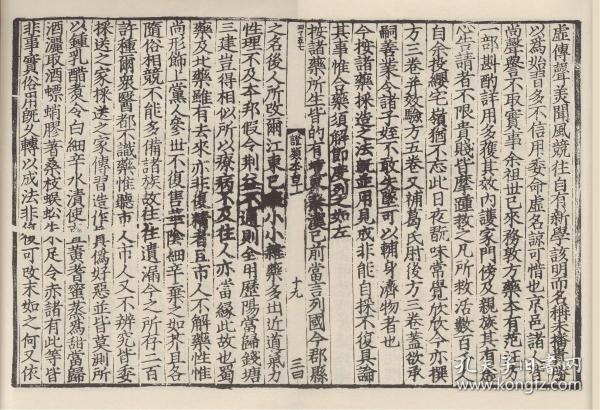 虚傳聲美聞風競往自有新學該明而名稱未播貴勝
以為始習多不信用委命虚名諒可惜也京邑諸人皆
尚聲譽不取實事余祖世已來務敦方藥本有范汪方
一部斟酌詳用多獲其效内護家門傍及親族其有虚
心告請者不限貴賤皆摩踵救之凡所救活數百千人
自余投纓宅嶺猶不忘此日夜翫味常覺欣欣今亦撰
方三卷并效驗方五卷又補葛氏肘後方三卷蓋欲承
嗣善業令諸子姪不敢失墜可以輔身濟物者也
今按諸藥採造之法既並用見成非能自採不復具論
其事惟合藥須解節度列之如左
按諸藥所生皆的有境界秦漢已前當言列國今郡縣
證類本草一
十九
三四
之名後人所改爾江東已來小小雜藥多出近道氣力
性理不及本邦假令荆益不通則全用歷陽當歸錢塘
三建豈得相似所以療病不及往人亦當緣此故也蜀
藥及北藥雖有去來亦非復精者且市人不解藥性惟
尚形飾上黨人參丗不復售華陰細辛棄之如芥且各
隨俗相競不能多備諸族故往往遺漏今之所存二百
許種爾眾醫都不識藥惟聽市人市人又不辨究皆委
採送之家採送之家傳習造作真偽好惡並皆莫測所
以鍾乳醋煮令白細辛水漬使直黃耆蜜蒸為甜當歸
酒灑取潤螵蛸膠著桑枝蜈蚣朱足令赤諸有此等皆
非事實俗用既久轉以成法非復可改末如之何又依
孔夫子旧书网
www.kongfz.com